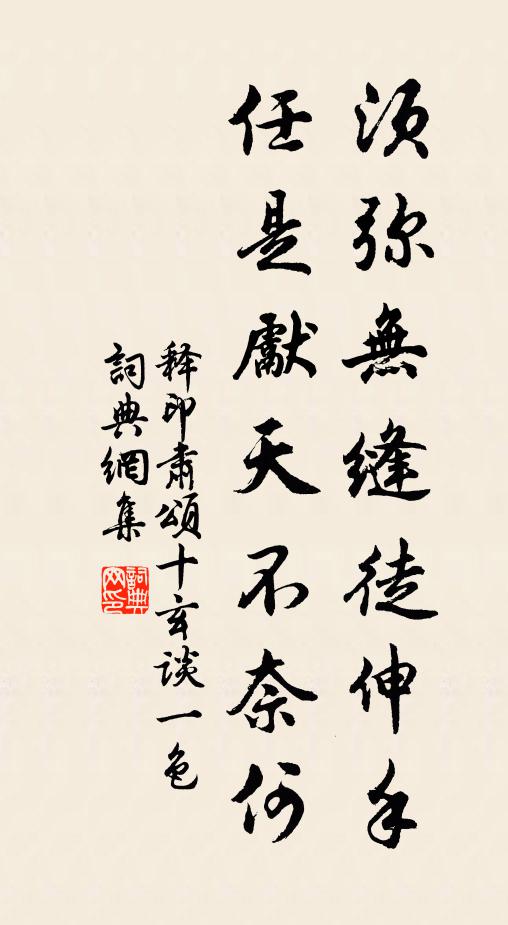 須弥無縫徒伸手
任是獻天不奈何
释印肅頌十玄談一色
詞典網集
詞典網印